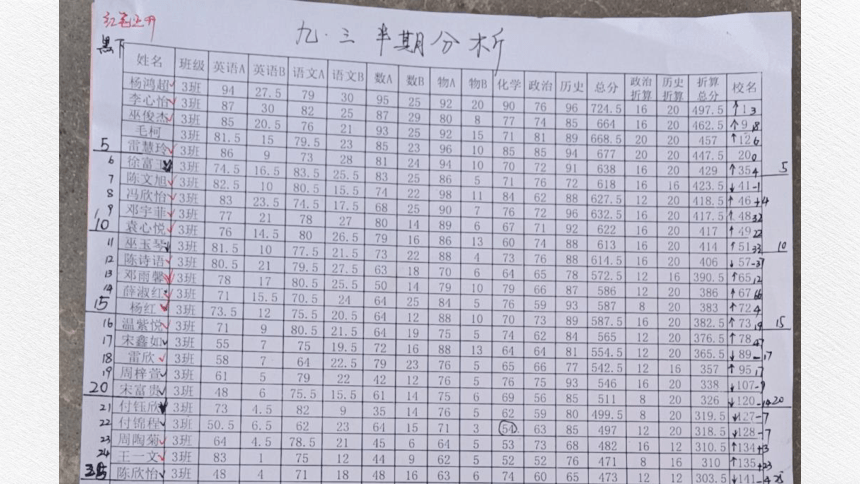 红笔上升
黑下
九·三半期分析
姓名 班级 英语A 英语B 语文A 语文B 数A 数B 物A 物B 化学 政治 历史 总分 政治折算 历史折算 折算总分 校名
杨鸿超 3班 94 27.5 79 30 95 25 92 20 90 76 96 724.5 16 20 497.5 ↑1
李心怡 3班 87 30 82 25 87 29 80 8 77 74 85 664 16 20 462.5 ↑9
巫俊杰 3班 85 20.5 76 21 93 25 92 15 71 81 89 668.5 20 20 457 ↑12
毛柯 3班 81.5 15 79.5 23 85 23 96 10 85 85 94 677 20 20 447.5 20
5 雷慧玲 3班 86 9 73 28 81 24 94 10 70 72 91 638 16 20 429 ↑35 5
6 徐富 3班 74.5 16.5 83.5 25.5 83 25 86 5 71 76 72 618 16 16 423.5 ↓41-1
7 陈文旭 3班 82.5 10 80.5 15.5 74 22 98 11 84 62 88 627.5 12 20 418.5 ↑46
8 冯欣怡 3班 83 23.5 74.5 17.5 68 25 90 7 76 72 96 632.5 16 20 417.5 ↑48
9 邓宇菲 3班 77 21 78 27 80 14 89 6 67 71 92 622 16 20 417 ↑49
10 袁心悦 3班 76 14.5 80 26.5 79 16 86 13 60 74 88 613 16 20 414 ↑51 10
11 巫玉琴 3班 81.5 10 77.5 21.5 73 22 88 4 73 76 88 614.5 16 20 406 ↓57
12 陈诗语 3班 80.5 21 79.5 27.5 63 18 70 6 64 65 78 572.5 12 16 390.5 ↑65
13 邓雨馨 3班 78 17 80.5 25.5 50 14 79 10 79 66 87 586 12 20 386 ↑67
14 薛淑红 3班 71 15.5 70.5 24 64 25 84 5 76 59 93 587 8 20 383 ↑72
15 杨红 3班 73.5 12 75.5 20.5 64 12 88 10 70 73 89 587.5 16 20 382.5 ↑73 15
16 温紫悦 3班 71 9 80.5 21.5 64 19 75 5 74 62 84 565 12 20 376.5 ↑78
17 宋鑫如 3班 55 7 75 19.5 72 16 88 13 64 64 81 554.5 12 20 365.5 ↓89-17
18 雷欣 3班 58 7 64 22.5 79 23 76 5 65 66 77 542.5 12 16 357 ↑95
19 周梓萱 3班 61 5 79 22 42 12 76 5 76 75 93 546 16 20 338 ↓107-9
20 宋富贵 3班 48 6 75.5 15.5 61 14 75 6 69 56 85 511 8 20 326 ↓120 20
21 付钰欣 3班 73 4.5 82 9 35 14 76 5 62 59 80 499.5 8 20 319.5 ↓127-7
22 付锦程 3班 50.5 6.5 62 23 64 15 71 3 54 63 85 497 12 20 318.5 ↓128-7
23 周陶菊 3班 64 4.5 78.5 21 45 6 64 5 53 73 68 482 16 12 310.5 ↑134+3
24 王一文 3班 83 1 75 12 44 9 62 5 52 52 76 471 8 16 310 ↑135+23
陈欣怡 3班 48 4 71 18 48 16 63 6 74 60 65 473 12 12 303.5 ↓141-4 25